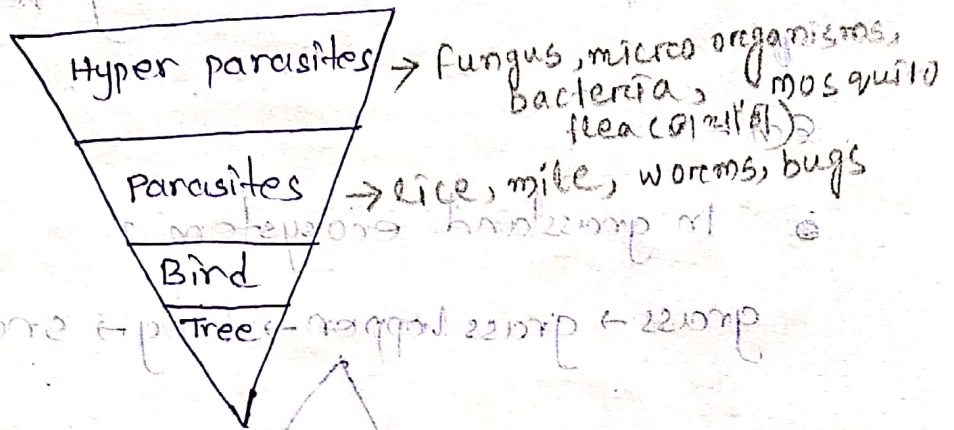 Hyper parasites → fungus, micro organisms,
bacteria, mosquito
flea
Parasites → lice, mite, worms, bugs
Bird
Tree